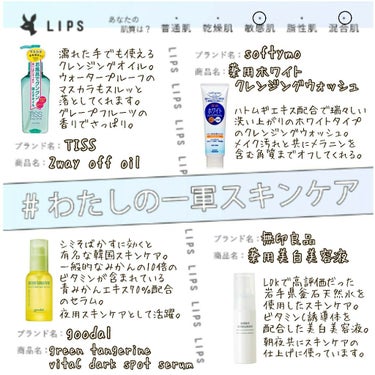 LIPS
あなたの
肌質は？
普通肌
乾燥肌
敏感肌
脂性肌
混合肌
濡れた手でも使える
クレンジングオイル。
ウォータープルーフの
マスカラもスルッと
落としてくれます。
グレープフルーツの
香りでさっぱり。
ブランド名： TISS
商品名： 2way off oil
ブランド名： softymo
商品名： 薬用ホワイト
クレンジングウォッシュ
ハトムギエキス配合で瑞々しい
洗い上がりのホワイトタイプ
のクレンジングウォッシュ。
メイク汚れと共にメラニンを
含む角質までオフしてくれる。
TISS
ホワイト
LIPS LIPS LIPS LIPS LIPS LIPS
#わたしの一軍スキンケア
シミそばかすに効くと
有名な韓国スキンケア。
一般的なみかんの10倍の
ビタミンが含まれている
青みかんエキス70%配合
のセラム。
夜用スキンケアとして活躍。
ブランド名： goodal
商品名： green tangerine
vitaC dark spot serum
goodal
ブランド名： 無印良品
商品名： 薬用美白美容液
LDKで高評価だった
岩手県釜石天然水を
使用したスキンケア。
ビタミンC誘導体を
配合した美白美容液。
朝夜共にスキンケアの
仕上げに使っています。